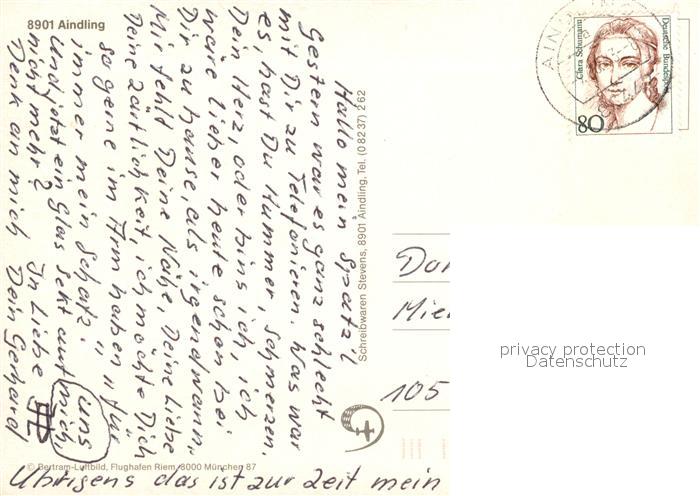 8901 Aindling
Hallo mein Spatz'l
gestern war es ganz schlecht
mit Dir zu Telefonieren. Was war
es, hast Du Kummer, Schmerzen,
Dein Herz, oder bins ich, ich
wäre lieber heute schon bei
Dir zu hause, als irgendwann.
Mir fehld Deine Nähe, Deine Liebe
Deine Zärtlichkeit, ich möchte Dich
so gerne im Arm haben " für
immer mein Schatz. "
Und jetzt ein Glas Sekt auf uns mich,
nicht mehr? In Liebe
Denk an mich Dein Gerhard
Übrigens das ist zur Zeit mein
© Bertram-Luftbild, Flughafen Riem, 8000 München 87
Schreibwaren Stevens, 8901 Aindling, Tel. (0 82 37) 2 62
Clara Schumann
Deutsche Bundespost
80
AINDLING
105
privacy protection
Datenschutz